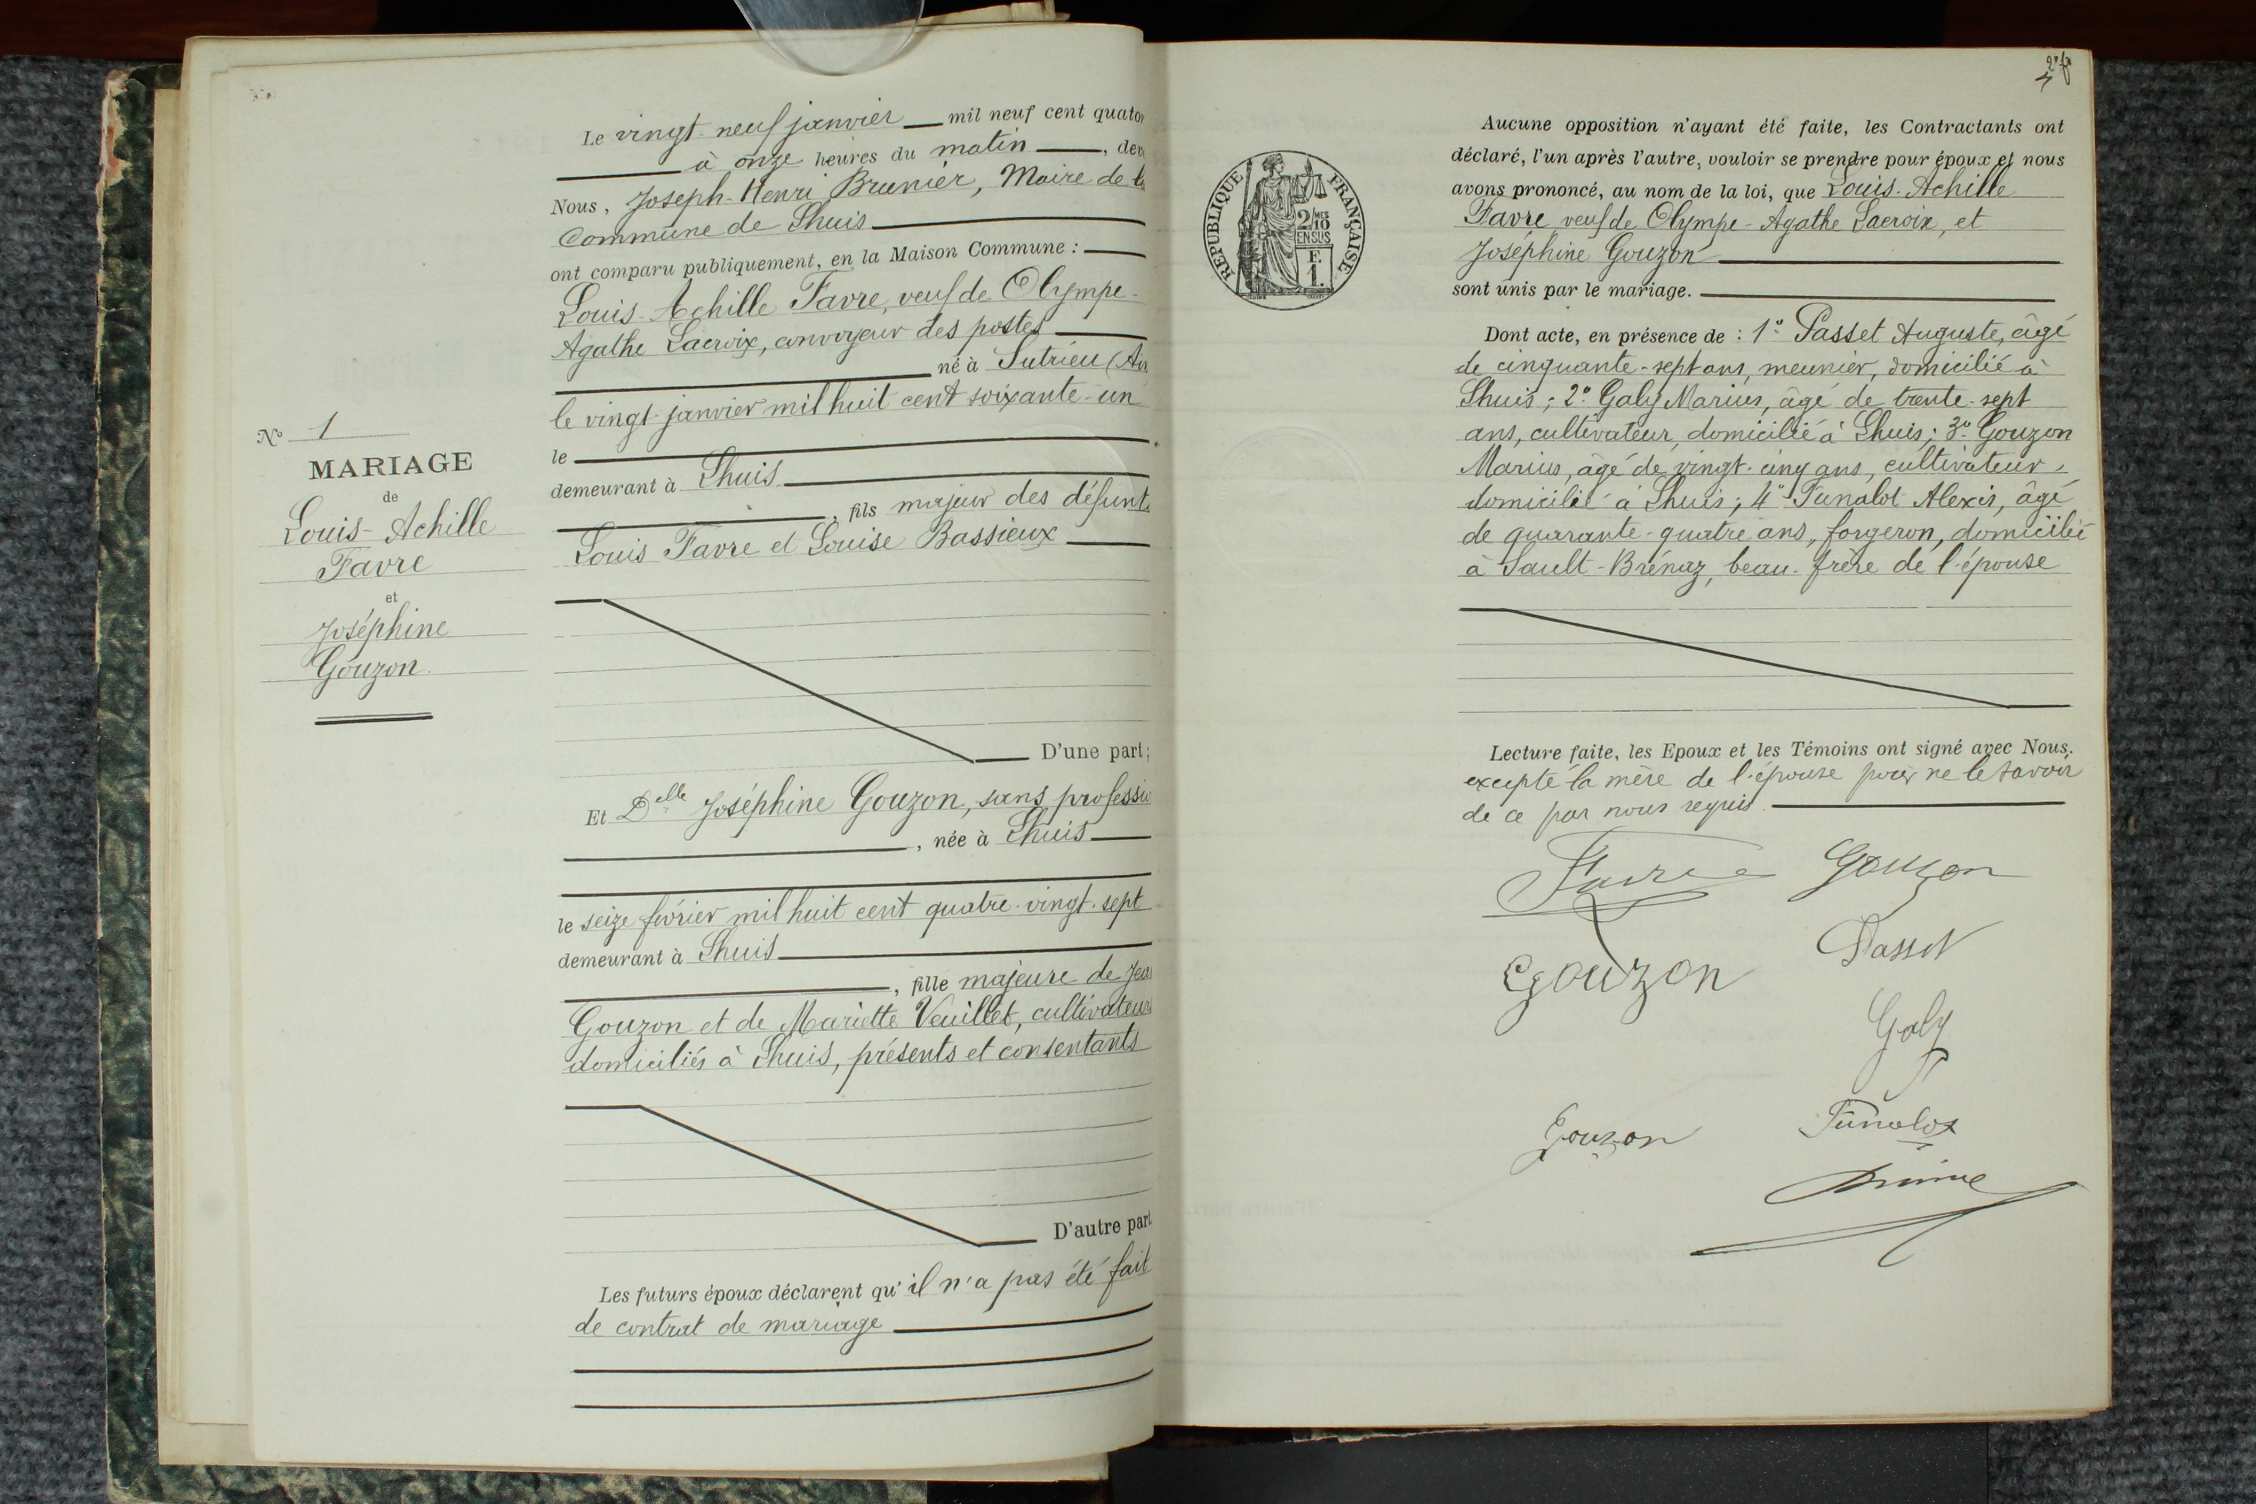 N° 1
MARIAGE
de
Louis-Achille
Favre
et
Joséphine
Gouzon
Le vingt-neuf janvier mil neuf cent quator
à onze heures du matin, dev
Nous, Joseph-Henri Brunier, Maire de la
Commune de Lhuis
ont comparu publiquement, en la Maison Commune :
Louis-Achille Favre, veuf de Olympe-
Agathe Lacroix, convoyeur des postes
né à Sutrieu (Ain
le vingt janvier mil huit cent soixante-un
le
demeurant à Lhuis
, fils majeur des défunts
Louis Favre et Louise Bassieux
D'une part;
Et Delle Joséphine Gouzon, sans professio
, née à Lhuis
le seize février mil huit cent quatre-vingt-sept
demeurant à Lhuis
, fille majeure de Jean
Gouzon et de Mariette Veuillet, cultivateurs
domiciliés à Lhuis, présents et consentants
D'autre part
Les futurs époux déclarent qu'il n'a pas été fait
de contrat de mariage
REPUBLIQUE FRANÇAISE
2/10MES
EN SUS
F.
1.
Aucune opposition n'ayant été faite, les Contractants ont
déclaré, l'un après l'autre, vouloir se prendre pour époux et nous
avons prononcé, au nom de la loi, que Louis-Achille
Favre veuf de Olympe-Agathe Lacroix, et
Joséphine Gouzon
sont unis par le mariage.
Dont acte, en présence de : 1° Passet Auguste, âgé
de cinquante-sept ans, meunier, domicilié à
Lhuis ; 2° Galy Marius, âgé de trente-sept
ans, cultivateur, domicilié à Lhuis ; 3° Gouzon
Marius, âgé de vingt-cinq ans, cultivateur,
domicilié à Lhuis ; 4° Tunalot Alexis, âgé
de quarante-quatre ans, forgeron, domicilié
à Sault-Brénaz, beau-frère de l'épouse
Lecture faite, les Epoux et les Témoins ont signé avec Nous.
excepté la mère de l'épouse pour ne le savoir
de ce par nous requis.
Favre Gouzon
Gouzon Passet
Galy
Gouzon Tunalot